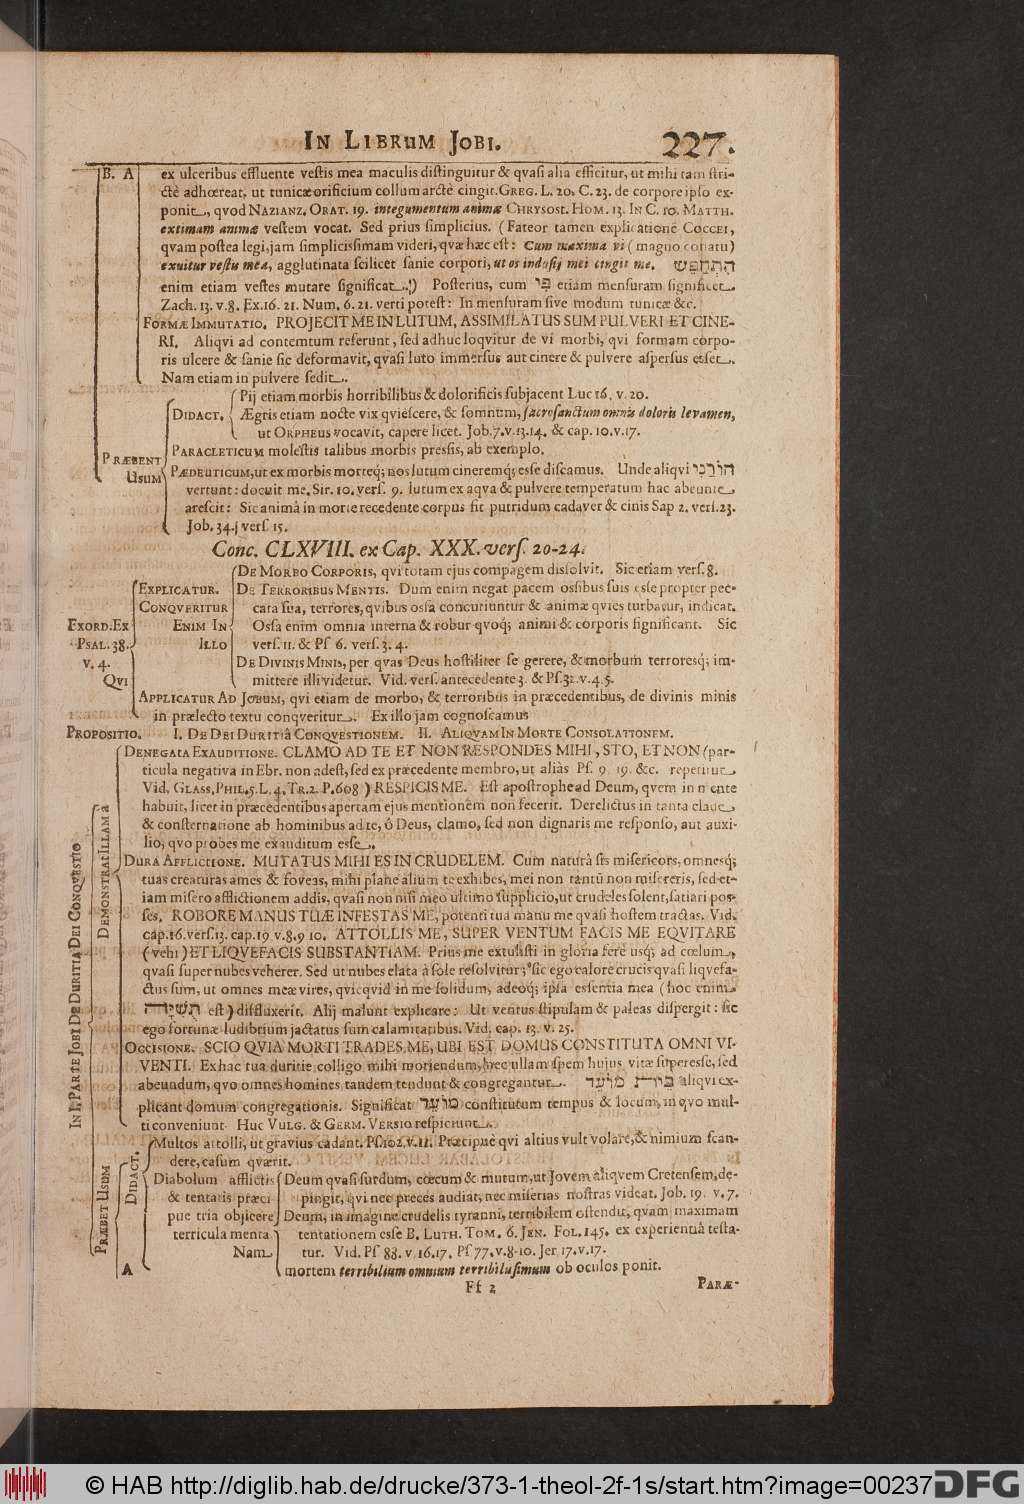 IN LIBRUM JOBI. 227.
B. A ex ulceribus effluente vestis mea maculis distinguitur & qvasi alia efficitur, ut mihi tam stri-
ctè adhœreat, ut tunicæ orificium collum arctè cingit. GREG. L. 20. C. 23. de corpore ipso ex-
ponit, qvod NAZIANZ. ORAT. 19. integumentum animæ CHRYSOST. HOM. 13. IN C. 10. MATTH.
extimam animæ vestem vocat. Sed prius simplicius. (Fateor tamen explicationẽ COCCEI,
qvam postea legi, jam simplicissimam videri, qvæ hæc est: Cum maxima vi (magno conatu)
exuitur vestis mea, agglutinata scilicet sanie corpori, ut os indusij mei cingit me. הִתְחַפֵּשׂ
enim etiam vestes mutare significat.!) Posterius, cum פִּי etiam mensuram significet
Zach. 13. v. 8. Ex. 16. 21. Num. 6. 21. verti potest: In mensuram sive modum tunicæ &c.
FORMÆ IMMUTATIO. PROJECIT ME IN LUTUM, ASSIMILATUS SUM PULVERI ET CINE-
RI. Aliqvi ad contemtum referunt, sed adhuc loqvitur de vi morbi, qvi formam corpo-
ris ulcere & sanie sic deformavit, qvasi luto immersus aut cinere & pulvere aspersus esset.
Nam etiam in pulvere sedit.
Pij etiam morbis horribilibus & dolorificis subjacent Luc 16. v. 20.
DIDACT. Ægris etiam nocte vix qviescere, & somnum, sacrosanctum omnis doloris levamen,
ut ORPHEUS vocavit, capere licet. Job. 7. v. 13. 14. & cap. 10. v. 17.
PRÆBENT USUM
PARACLETICUM molestis talibus morbis pressis, ab exemplo.
PÆDEUTICUM, ut ex morbis morteq; nos lutum cineremq; esse discamus. Unde aliqvi
vertunt: docuit me. Sir. 10. vers. 9. lutum ex aqva & pulvere temperatum hac abeunte
arescit: Sic animâ in morte recedente corpus fit putridum cadaver & cinis Sap 2. vers. 23.
Job. 34. vers. 15.
Conc. CLXVIII. ex Cap. XXX. vers. 20-24.
EXORD. EX PSAL. 38. v. 4. QVI
EXPLICATUR. CONQVERITUR ENIM IN ILLO
DE MORBO CORPORIS, qvi totam ejus compagem dissolvit. Sic etiam vers. 8.
DE TERRORIBUS MENTIS. Dum enim negat pacem ossibus suis esse propter pec-
cata sua, terrores, qvibus ossa concutiuntur & animæ qvies turbatur, indicat.
Ossa enim omnia interna & robur qvoq; animi & corporis significant. Sic
vers. 11. & Ps 6. vers. 3. 4.
DE DIVINIS MINIS, per qvas Deus hostiliter se gerere, & morbum terroresq; im-
mittere illi videtur. Vid. vers. antecedente 3. & Ps. 32. v. 4. 5.
APPLICATUR AD JOBUM, qvi etiam de morbo, & terroribus in præcedentibus, de divinis minis
in prælecto textu conqveritur. Ex illo jam cognoscamus
PROPOSITIO. I. DE DEI DURITIÂ CONQVESTIONEM. II. ALIQVAM IN MORTE CONSOLATIONEM.
IN I. PARTE JOBI DE DURITIA DEI CONQVESTIO
DEMONSTRAT ILLAM a
DENEGATA EXAUDITIONE. CLAMO AD TE ET NON RESPONDES MIHI, STO, ET NON (par-
ticula negativa in Ebr. non adest, sed ex præcedente membro, ut aliàs Ps. 9. 19. &c. repetitur
Vid. GLASS. PHIL. 5. L. 4. TR. 2. P. 608) RESPICIS ME. Est apostrophe ad Deum, qvem in mente
habuit, licet in præcedentibus apertam ejus mentionem non fecerit. Derelictus in tanta clade
& consternatione ab hominibus ad te, ô Deus, clamo, sed non dignaris me responso, aut auxi-
lio, qvo probes me exauditum esse.
DURA AFFLICTIONE. MUTATUS MIHI ES IN CRUDELEM. Cum naturâ sis misericors, omnesq;
tuas creaturas ames & foveas, mihi plane alium te exhibes, mei non tantũ non misereris, sed et-
iam misero afflictionem addis, qvasi non nisi meo ultimo supplicio, ut crudeles solent, satiari pos-
ses. ROBORE MANUS TUÆ INFESTAS ME, potenti tua manu me qvasi hostem tractas. Vid.
cap. 16. vers. 13. cap. 19. v. 8. 9 10. ATTOLLIS ME, SUPER VENTUM FACIS ME EQVITARE
(vehi) ET LIQVEFACIS SUBSTANTIAM. Prius me extulisti in gloria ferè usq; ad cœlum,
qvasi super nubes veherer. Sed ut nubes elata à sole resolvitur; sic ego calore crucis qvasi liqvefa-
ctus sum, ut omnes meæ vires, qvicqvid in me solidum, adeoq; ipsa essentia mea (hoc enim
תֻּשִׁיָּה est) diffluxerit. Alij malunt explicare: Ut ventus stipulam & paleas dispergit: sic
ego fortunæ ludibrium jactatus sum calamitatibus. Vid. cap. 13. v. 25.
OCCISIONE. SCIO QVIA MORTI TRADES ME, UBI EST DOMUS CONSTITUTA OMNI VI-
VENTI. Ex hac tua duritie colligo mihi moriendum, nec ullam spem hujus vitæ superesse, sed
abeundum, qvo omnes homines tandem tendunt & congregantur. בֵּית מוֹעֵד aliqvi ex-
plicant domum congregationis. Significat מוֹעֵד constitutum tempus & locum, in qvo mul-
ti conveniunt. Huc VULG. & GERM. VERSIO respiciunt.
PRÆBET USUM DIDACT.
Multos attolli, ut gravius cadant. Ps. 102. v. 11. Præcipuè qvi altius vult volare, & nimium scan-
dere, casum qværit.
Diabolum afflictis & tentatis præcipue tria objicere terriculamenta. Nam
Deum qvasi surdum, cœcum & mutum, ut Jovem aliqvem Cretensem, de-
pingit, qvi nec preces audiat, nec miserias nostras videat. Job. 19. v. 7.
Deum, in imagine crudelis tyranni, terribilem ostendit, qvam maximam
tentationem esse B. LUTH. TOM. 6. JEN. FOL. 145. ex experientiâ testa-
tur. Vid. Ps 88. v. 16. 17. Ps 77. v. 8-10. Jer. 17. v. 17.
mortem terribilium omnium terribilissimum ob oculos ponit.
A
Ff 2 PARÆ-
© HAB http://diglib.hab.de/drucke/373-1-theol-2f-1s/start.htm?image=00237
DFG